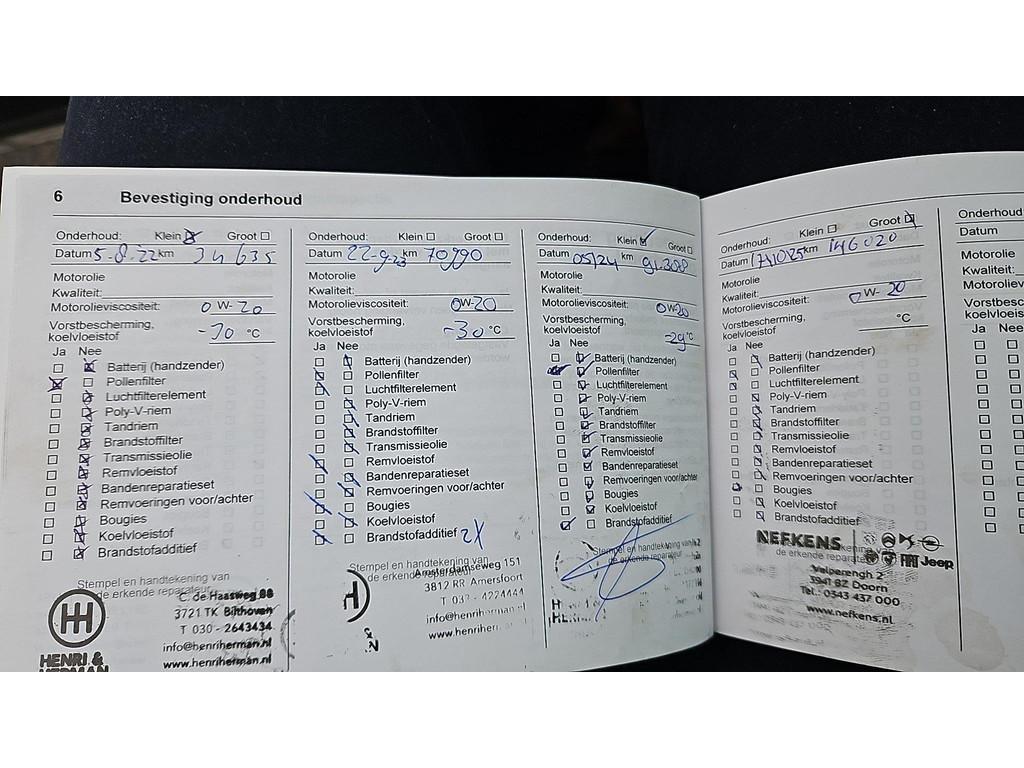 6 Bevestiging onderhoud
Onderhoud: Klein Groot
Datum 5-8-22 km 34635
Motorolie
Kwaliteit:
Motorolieviscositeit: 0W-20
Vorstbescherming,
koelvloeistof -30 °C
Ja Nee
Batterij (handzender)
Pollenfilter
Luchtfilterelement
Poly-V-riem
Tandriem
Brandstoffilter
Transmissieolie
Remvloeistof
Bandenreparatieset
Remvoeringen voor/achter
Bougies
Koelvloeistof
Brandstofadditief
Stempel en handtekening van
de erkende reparateur
C. de Haasweg 88
3721 TK Bilthoven
T 030 - 2643434
info@henriherman.nl
www.henriherman.nl
HENRI &
HERMAN
Onderhoud: Klein Groot
Datum 22-9-23 km 70990
Motorolie
Kwaliteit:
Motorolieviscositeit: 0W-20
Vorstbescherming,
koelvloeistof -30 °C
Ja Nee
Batterij (handzender)
Pollenfilter
Luchtfilterelement
Poly-V-riem
Tandriem
Brandstoffilter
Transmissieolie
Remvloeistof
Bandenreparatieset
Remvoeringen voor/achter
Bougies
Koelvloeistof
Brandstofadditief 2x
Stempel en handtekening van
de erkende reparateur
Amsterdamseweg 151
3812 RR Amersfoort
T 033 - 4224444
info@henriherman.nl
www.henriherman
Onderhoud: Klein Groot
Datum 05/24 km 91.308
Motorolie
Kwaliteit:
Motorolieviscositeit: 0W-20
Vorstbescherming,
koelvloeistof -29 °C
Ja Nee
Batterij (handzender)
Pollenfilter
Luchtfilterelement
Poly-V-riem
Tandriem
Brandstoffilter
Transmissieolie
Remvloeistof
Bandenreparatieset
Remvoeringen voor/achter
Bougies
Koelvloeistof
Brandstofadditief
Stempel en handtekening van
de erkende reparateur
Onderhoud: Klein Groot
Datum km 146020
Motorolie
Kwaliteit:
Motorolieviscositeit: 0W-20
Vorstbescherming,
koelvloeistof °C
Ja Nee
Batterij (handzender)
Pollenfilter
Luchtfilterelement
Poly-V-riem
Tandriem
Brandstoffilter
Transmissieolie
Remvloeistof
Bandenreparatieset
Remvoeringen voor/achter
Bougies
Koelvloeistof
Brandstofadditief
NEFKENS Jeep
de erkende reparateur
Velperengh 2
3941 BZ Doorn
Tel.: 0343 437 000
www.nefkens.nl
Onderhoud:
Datum
Motorolie
Kwaliteit:
Ja Nee